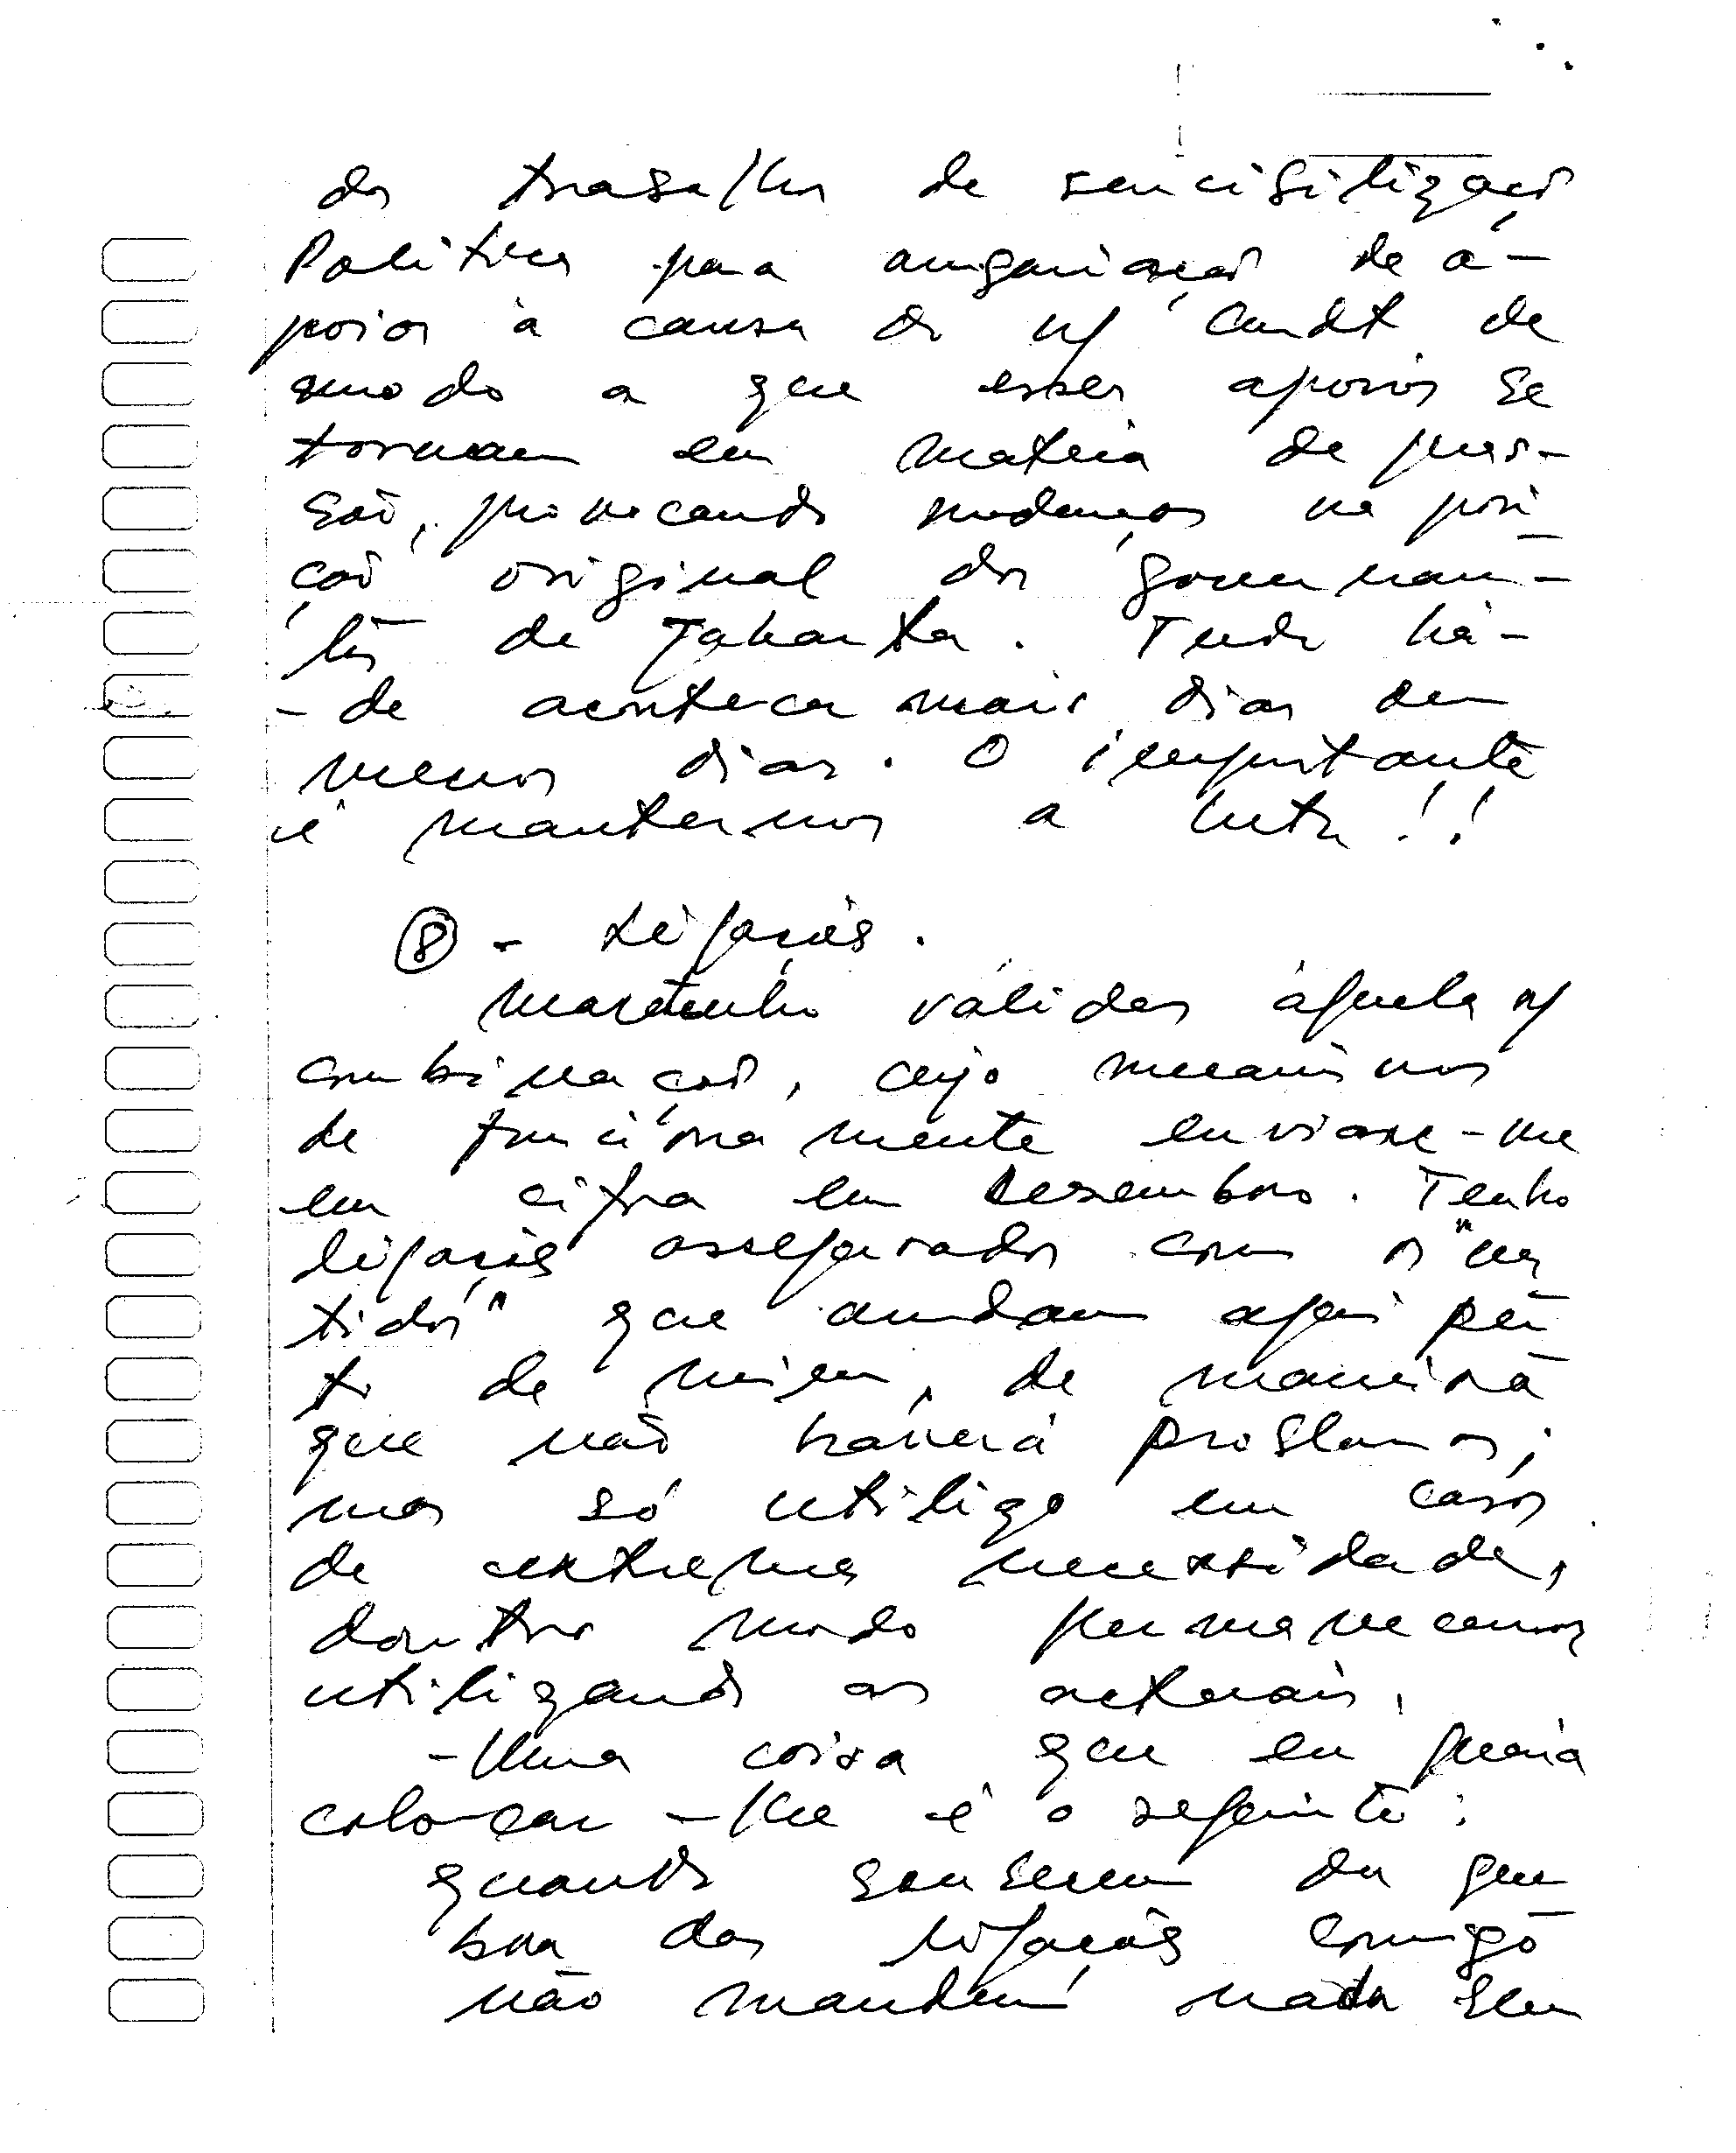 do trabalho de sencibilização
Politica para angariação de a-
poios à causa do n/ Cmdt de
modo a que esses apoios se
tornam em materia de pres-
são, provocando mudanças na posi
ção original dos governan-
tes de Jakarta. Tudo há-
-de acontecer mais dias ou
menos dias. O importante
é mantermos a luta!!
⑧ - Ligações.
Mantenho válidas àquela n/
combinação, cujo mecanismos
de funcionamente enviase-me
em cifra em Dezembro. Tenho
ligações asseguradas com os "ves
tidos" que andam aqui per
to de mim, de maneira
que não haverá problemas;
mas só utilizo em casos
de extrema necessidade,
doutro modo permanecemos
utilizando as actuais.
-Uma coisa que eu queria
colocar-lhe é o seguinte:
quando souberem da que
bra das ligações comigo
não mandem nada sem